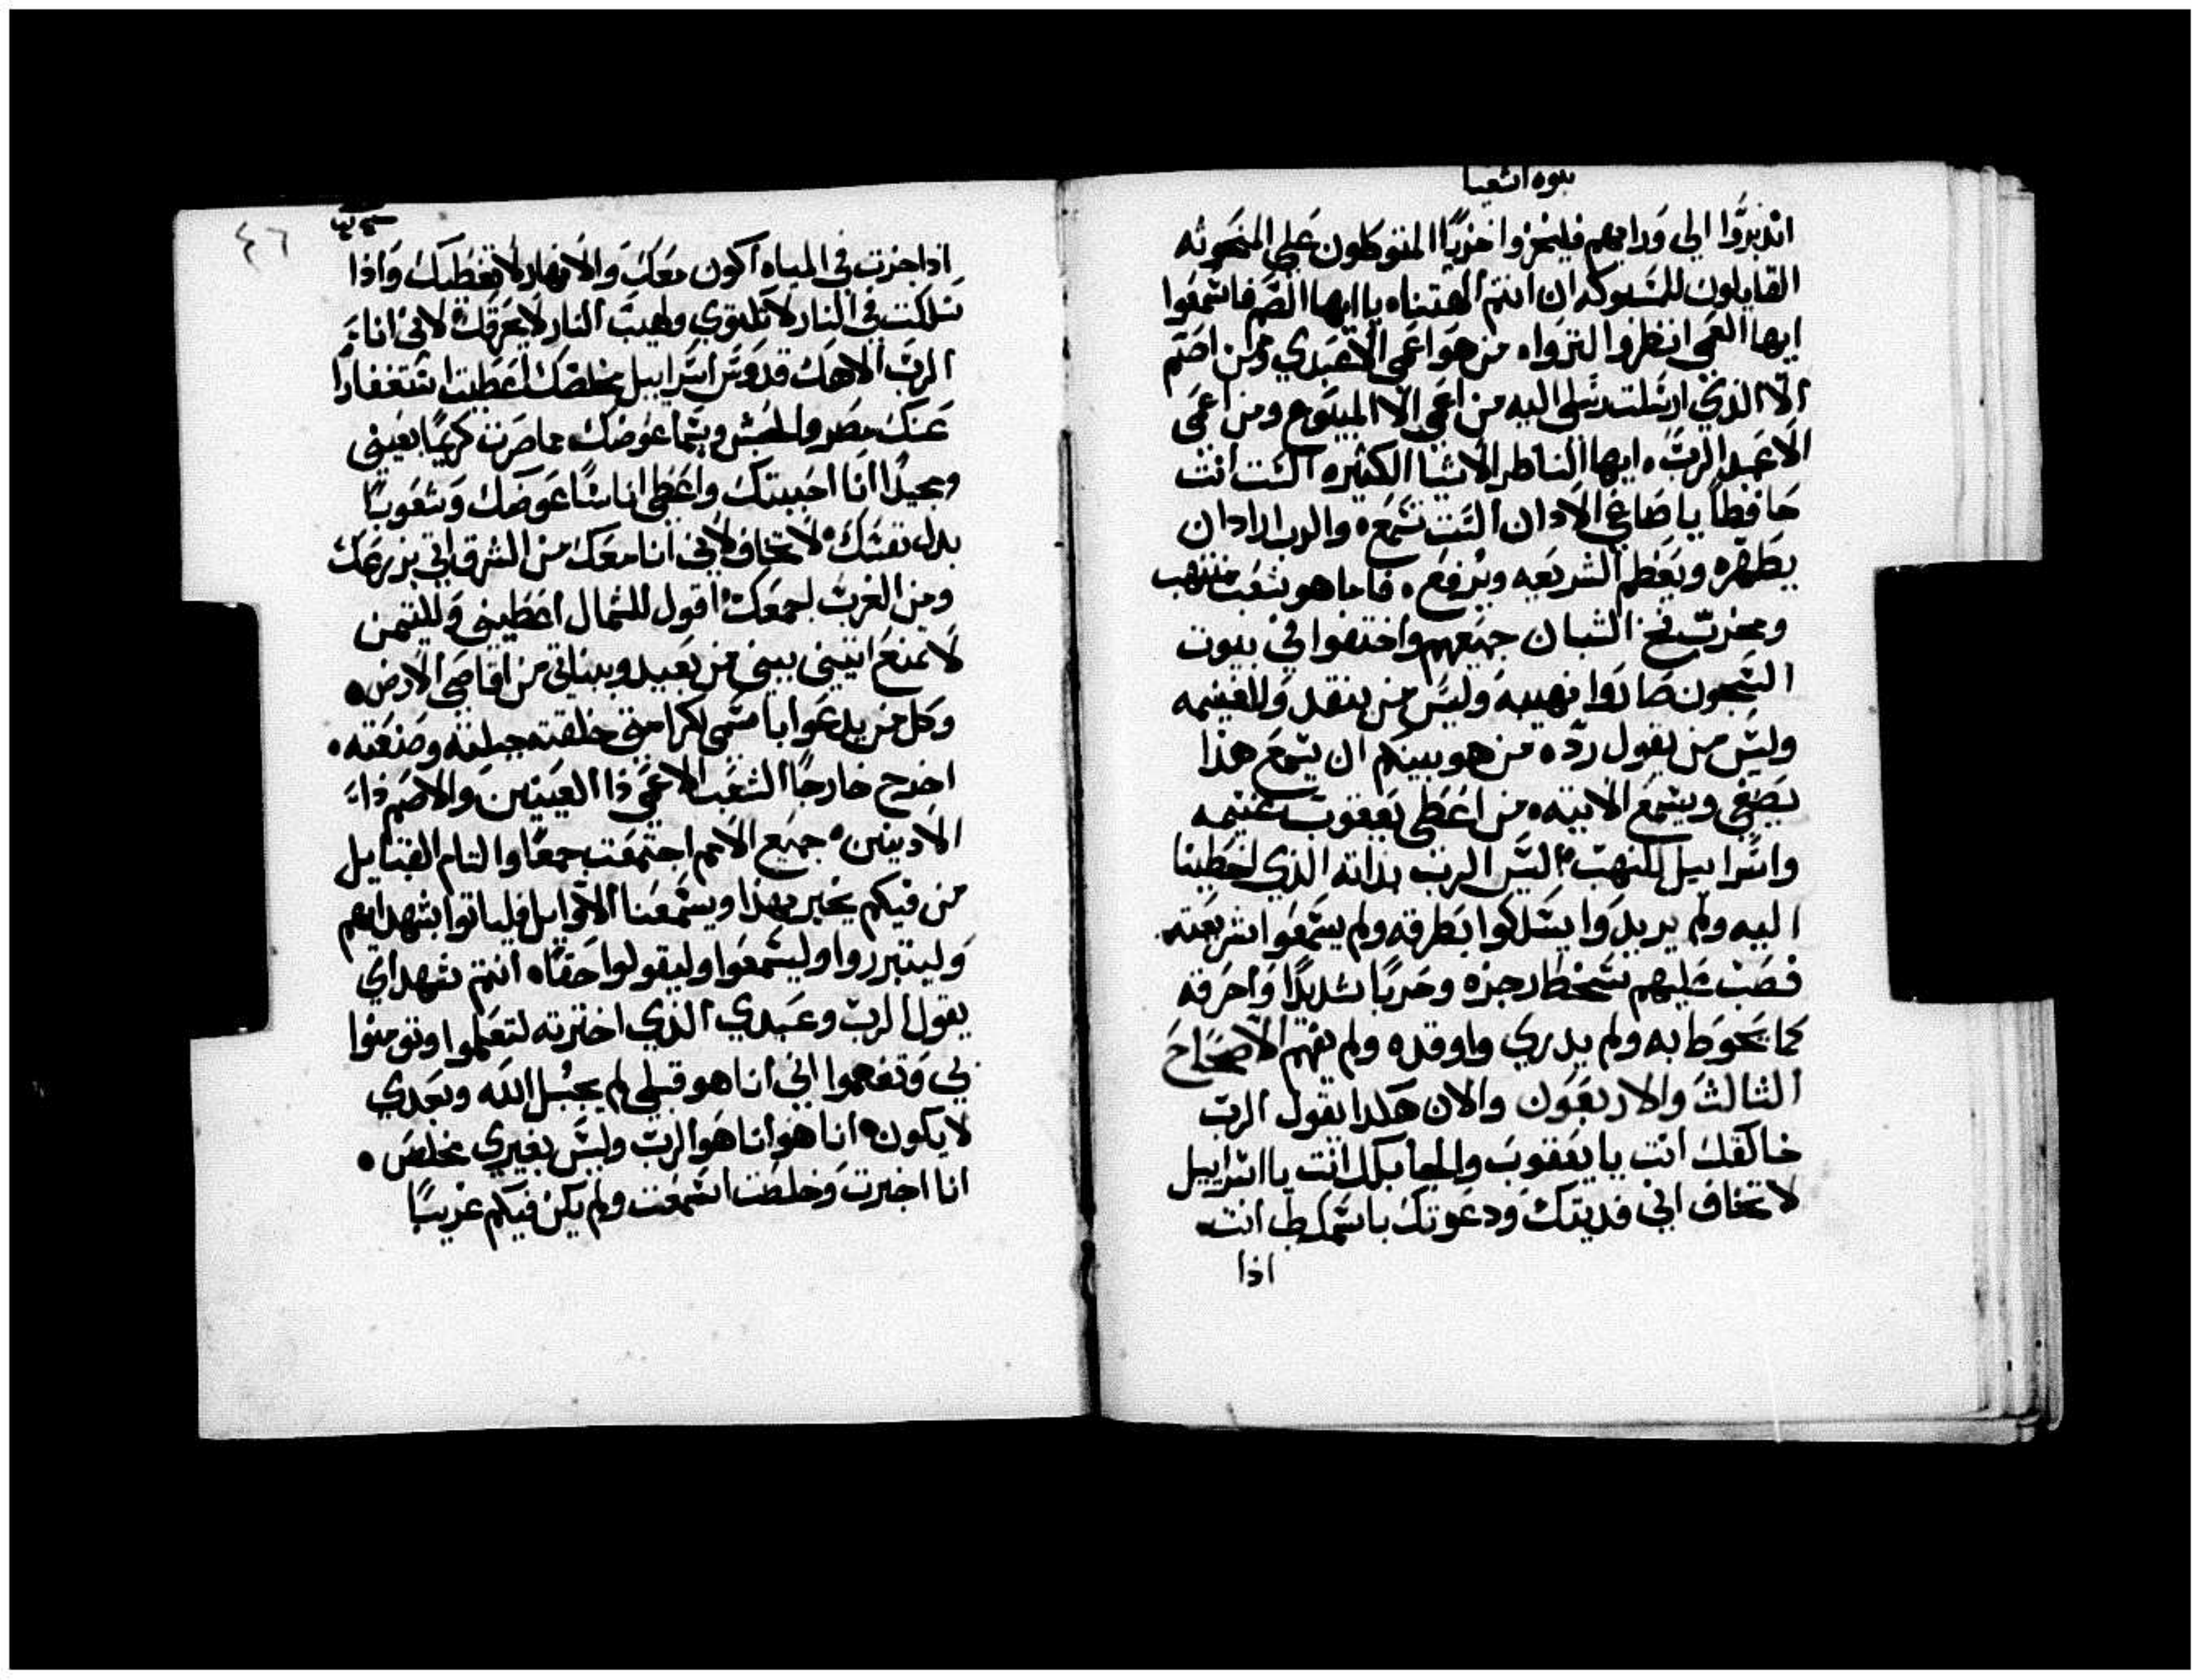 نبوه اشعيا
اندبروا الى ورايهم فليخزوا خزيًا المتوكلون على المنحوته
القايلون للسبوكه ان انتم الهتناه يا ايها الصم فاسمعوا
ايها العمي انظروا لتروا٥ من هو اعمى الا عبدي ومن اصم
الا الذي ارسلت رسلي اليه من اعمى الا المبيوع ومن اعمى
الا عبد الرب٥ ايها الناظر الاشيا الكثيره الست انت
حافظًا يا صاغي الادان الست تسمع٥ والرب اراد ان
يطهره ويعظم الشريعه ويرفع٥ فاما هو شعب منتهب
ومخرب فخ الشبان جميعهم واختفوا في بيوت
السجون صاروا نهيبه وليس من ينقد ولا غنيمه
وليس من يقول رد٥ من هو بينكم ان يسمع هذا
يصغي ويسمع الاتيه٥ من اعطى يعقوب غنيمه
واسراييل للنهب اليس الرب بذاته الذي اخطينا
اليه ولم يريدوا يسلكوا بطرقه ولم يسمعوا شريعته
فصب عليهم سخط رجزه وحربًا شديدًا واحرقه
كما يحوط به ولم يدري واوقده ولم يفهم الاصحاح
الثالث والاربعون والان هكدا يقول الرب
خالقك انت يا يعقوب والجابلك انت يا اسراييل
لا تخاف اني فديتك ودعوتك باسمك لي انت
اذا
٤٦
اذا جزت في المياه اكون معك والانهار لا تغطيك واذا
سلكت في النار لا تلتوي ولهيب النار لا يحرقك٥ لاني انا
الرب الاهك قدوس اسراييل مخلصك اعطيت استغفارًا
عنك مصر والحبش وسبا عوضك مما صرت كريمًا بعيني
ومجيدًا انا احببتك واعطي اناسًا عوضك وشعوبًا
بدل نفسك٥ لا تخاف لاني انا معك من الشرق اتي بزرعك
ومن الغرب اجمعك٥ اقول للشمال اعطيني وللتيمن
لا تمنع اتيني ببني من بعيد وبناتي من اقاصي الارض٥
وكل من يدعوا باسمي لكرامتي خلقته جبلته وصنعته٥
اخرج خارجًا الشعب الاعمى ذا العينين والاصم ذا
الادينين٥ جميع الامم اجتمعت جمعًا والتام القبايل
من فيكم يخبر بهذا ويسمعنا الاوايل فلياتوا بشهداهم
وليتبرروا وليسمعوا وليقولوا حقًا٥ انتم شهداي
يقول الرب وعبدي الذي اخترته لتعلموا وتومنوا
بي وتفهموا اني انا هو قبلي لم يجبل اله وبعدي
لا يكون٥ انا هو انا هو الرب وليس بغيري مخلص٥
انا اخبرت وخلصت اسمعت ولم يكن فيكم غريبًا